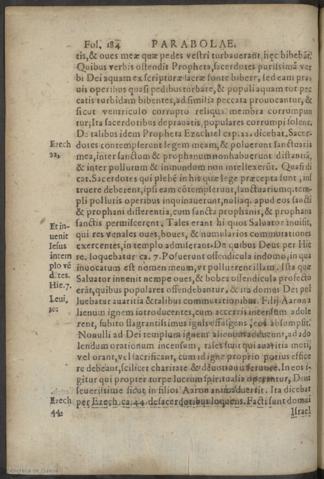 Fol. 184 PARABOLAE.
tis, & oues meæ quæ pedes vestri turbauerant, hęc bibebāt.
Quibus verbis ostendit Propheta, sacerdotes purissimā ver
bi Dei aquam ex scripturæ sacræ fonte bibere, sed eam pra
uis operibus quasi pedibus turbare, & populi aquam tot pec
catis turbidam bibentes, ad similia peccata prouocantur, &
sicut ventriculo corrupto reliqua membra corrumpun
tur, Ita sacerdotibus deprauatis, populares corrumpi solent.
De talibus idem Propheta Ezechiel cap. 22. dicebat, Sacer-
Ezech dotes contempserunt legem meam, & poluerunt sanctuaria
22. mea, inter sanctum & prophanum non habuerunt distantiā,
& inter pollutum & immundum non intellexerūt. Quasi di
cat. Sacerdotes qui plebē in his quæ lege præcepta sunt, in
struere deberent, ipsi eam cōtempserunt, sanctuariumq. tem-
pli pollutis operibus inquinauerunt, nullaq. apud eos sancti
& prophani differentia, cum sancta prophanis, & prophana
sanctis permiscerent. Tales erant hi quos Saluator inuisit,
Et in- qui res venales oues, boues, & numularios commutationes
uenit exercentes, in templo admiserant. De quibus Deus per Hie
Iesus re. loquebatur ca. 7. Posuerunt offendicula indomo, in qua
intem inuocatum est nomen meum, vt polluerent illam. Ista quæ
plo vē Saluator inuenit nempe oues, & boues offendicula profectò
dētes. erāt, quibus populares offendebantur, & ita domus Dei pol
Hie. 7. luebatur auaritia & talibus commutationibus. Filij Aaron a
Leui, lienum ignem introducentes, cum accensis intensum adole
10. rent, subito flagrantissimus ignis effulgens, eos absumpsit.
Nonulli ad Dei templum ignem alienum adducunt, ad ado
lendum orationum incensum, tales sunt qui auaritia moti,
vel orant, vel sacrificant, cum id igne proprio potius effice
re debeant, scilicet charitate & deuotione feruente. In eos i-
gitur qui propter turpe lucrum spiritualia operantur, Deus
seuerissime sicut in filios Aaron animaduertit. Ita dicebat
Ezech per Ezech. ca. 44. de sacerdotibus loquens. Facti sunt domui
44. Israel